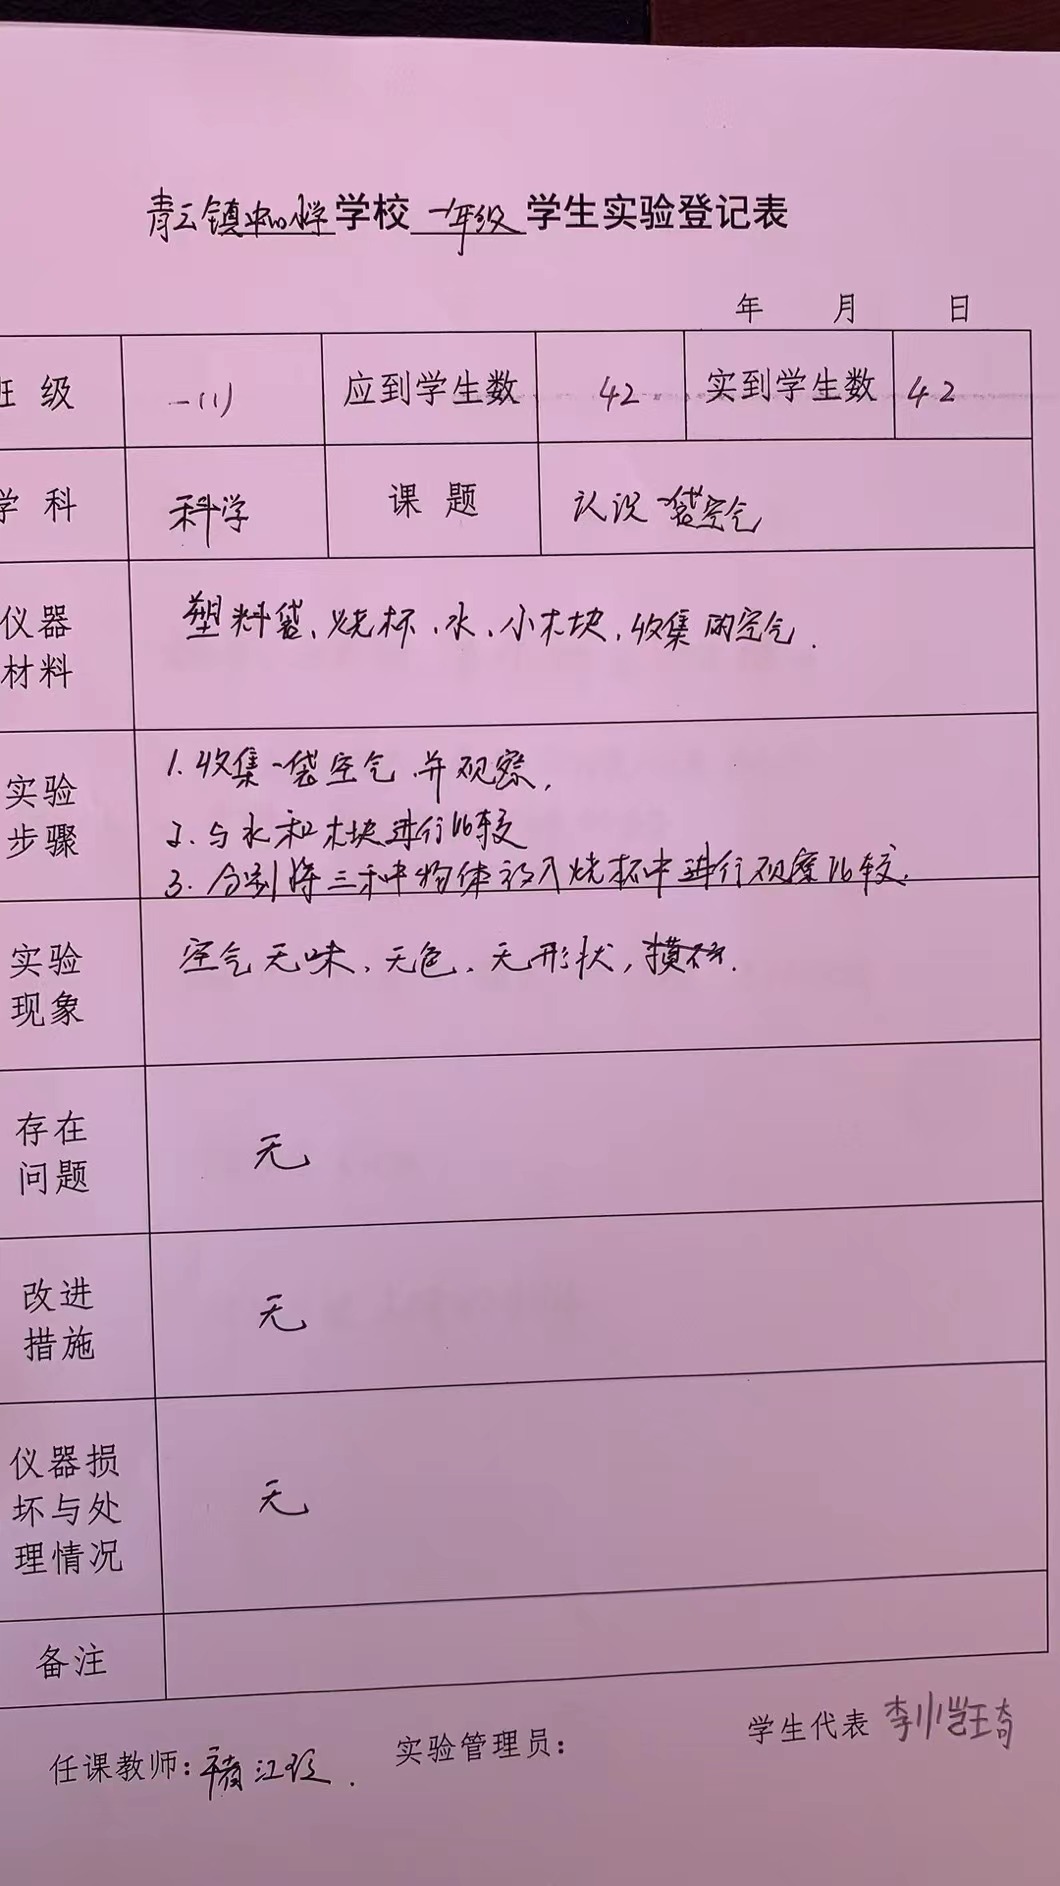 青云镇中心小学学校一年级学生实验登记表
年 月 日
班 级 一(1) 应到学生数 42 实到学生数 42
学 科 科学 课 题 认识一袋空气
仪器
材料
塑料袋、烧杯、水、小木块、收集的空气.
实验
步骤
1.收集一袋空气 并观察,
2.与水和木块进行比较
3.分别将三种物体放入烧杯中进行观察比较.
实验
现象
空气无味、无色、无形状,
存在
问题
无
改进
措施
无
仪器损
坏与处
理情况
无
备注
任课教师:
实验管理员:
学生代表 李小